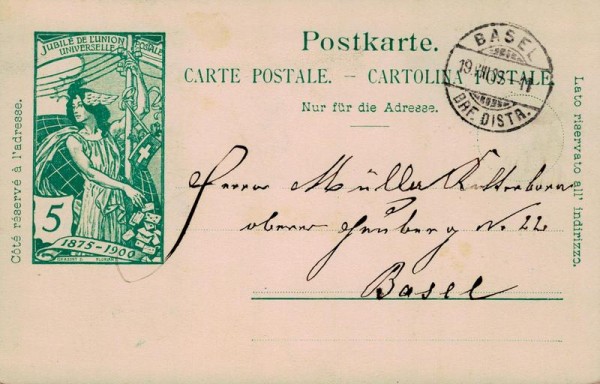 JUBILÉ DE L'UNION
POSTALE
UNIVERSELLE
5
1875-1900
Postkarte.
CARTE POSTALE. — CARTOLINA POSTALE.
Nur für die Adresse.
BASEL
BRF. DISTR.
Côté réservé à l'adresse.
Lato riservato all' indirizzo.
Herrn Müller
obere Heuberg No 22
Basel